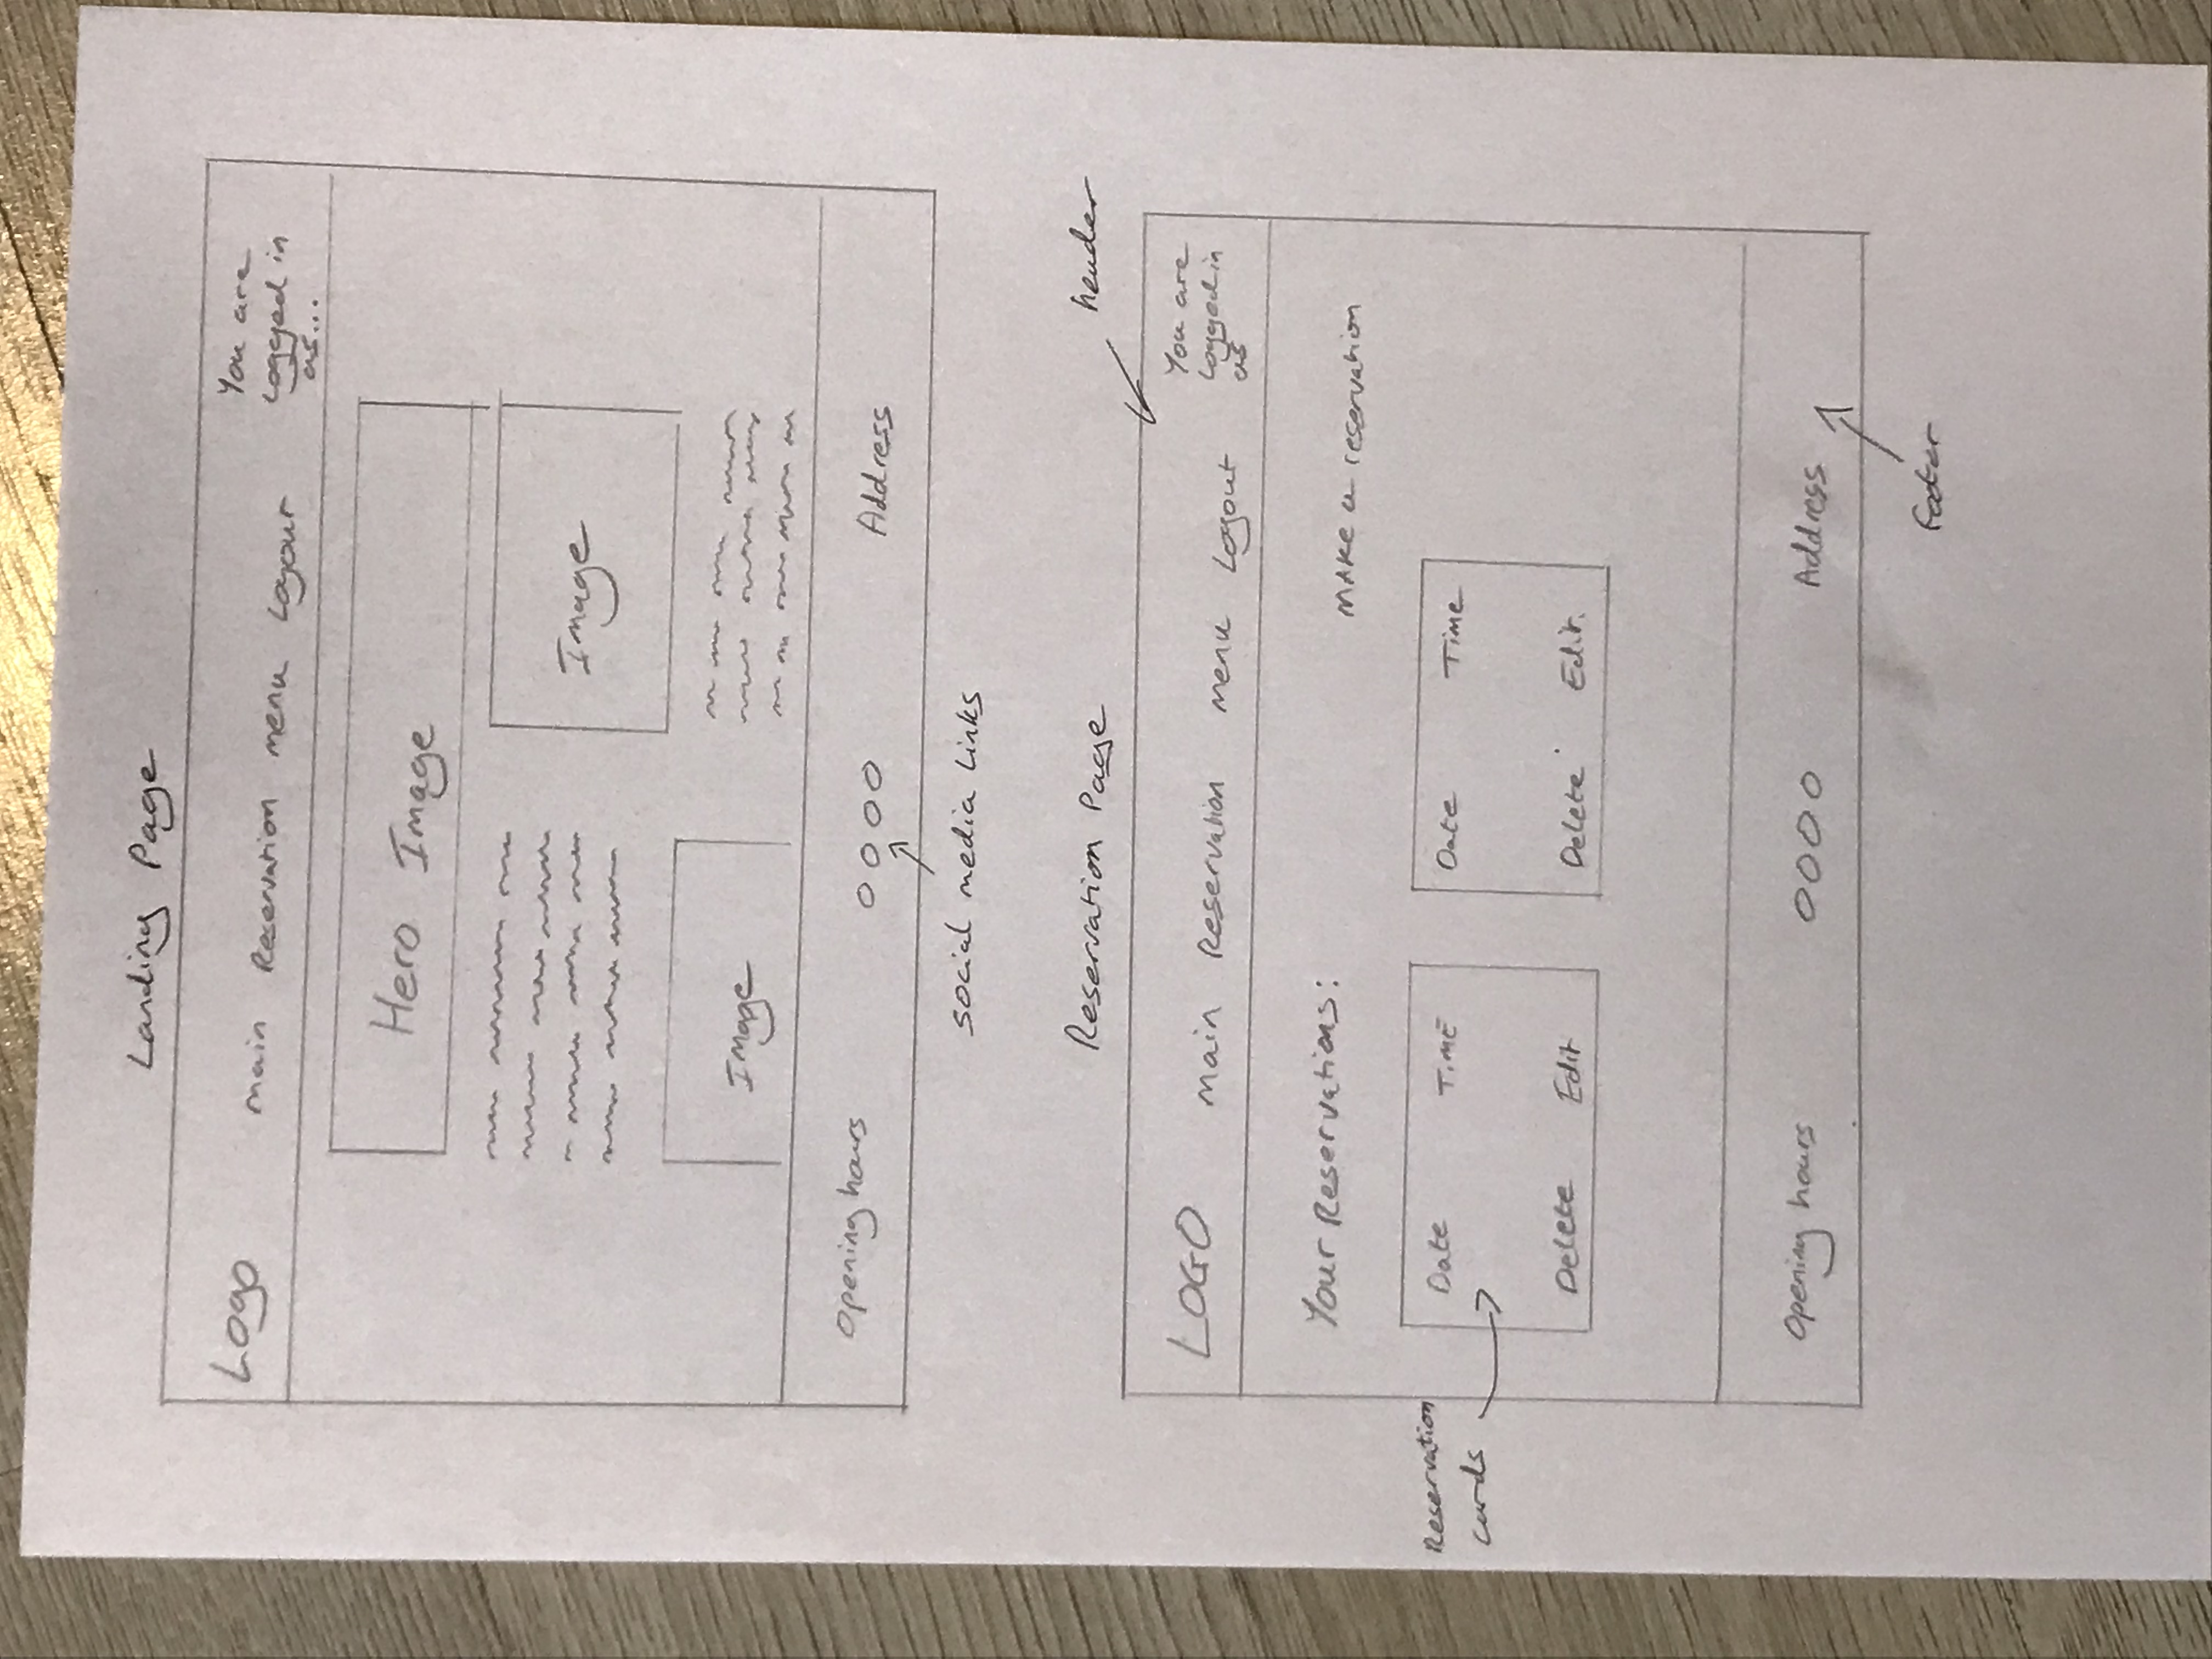 Landing Page
Logo main Reservation menu Logout You are
Logged in
as...
Hero Image
Image
Image
Opening hours Address
social media Links
Reservation Page
header
LOGO main Reservation menu Logout You are
Logged in
as
Your Reservations:
MAKe a reservation
Reservation
cards
Date TiME
Date Time
Delete Edit
Delete Edit.
Opening hours Address
footer